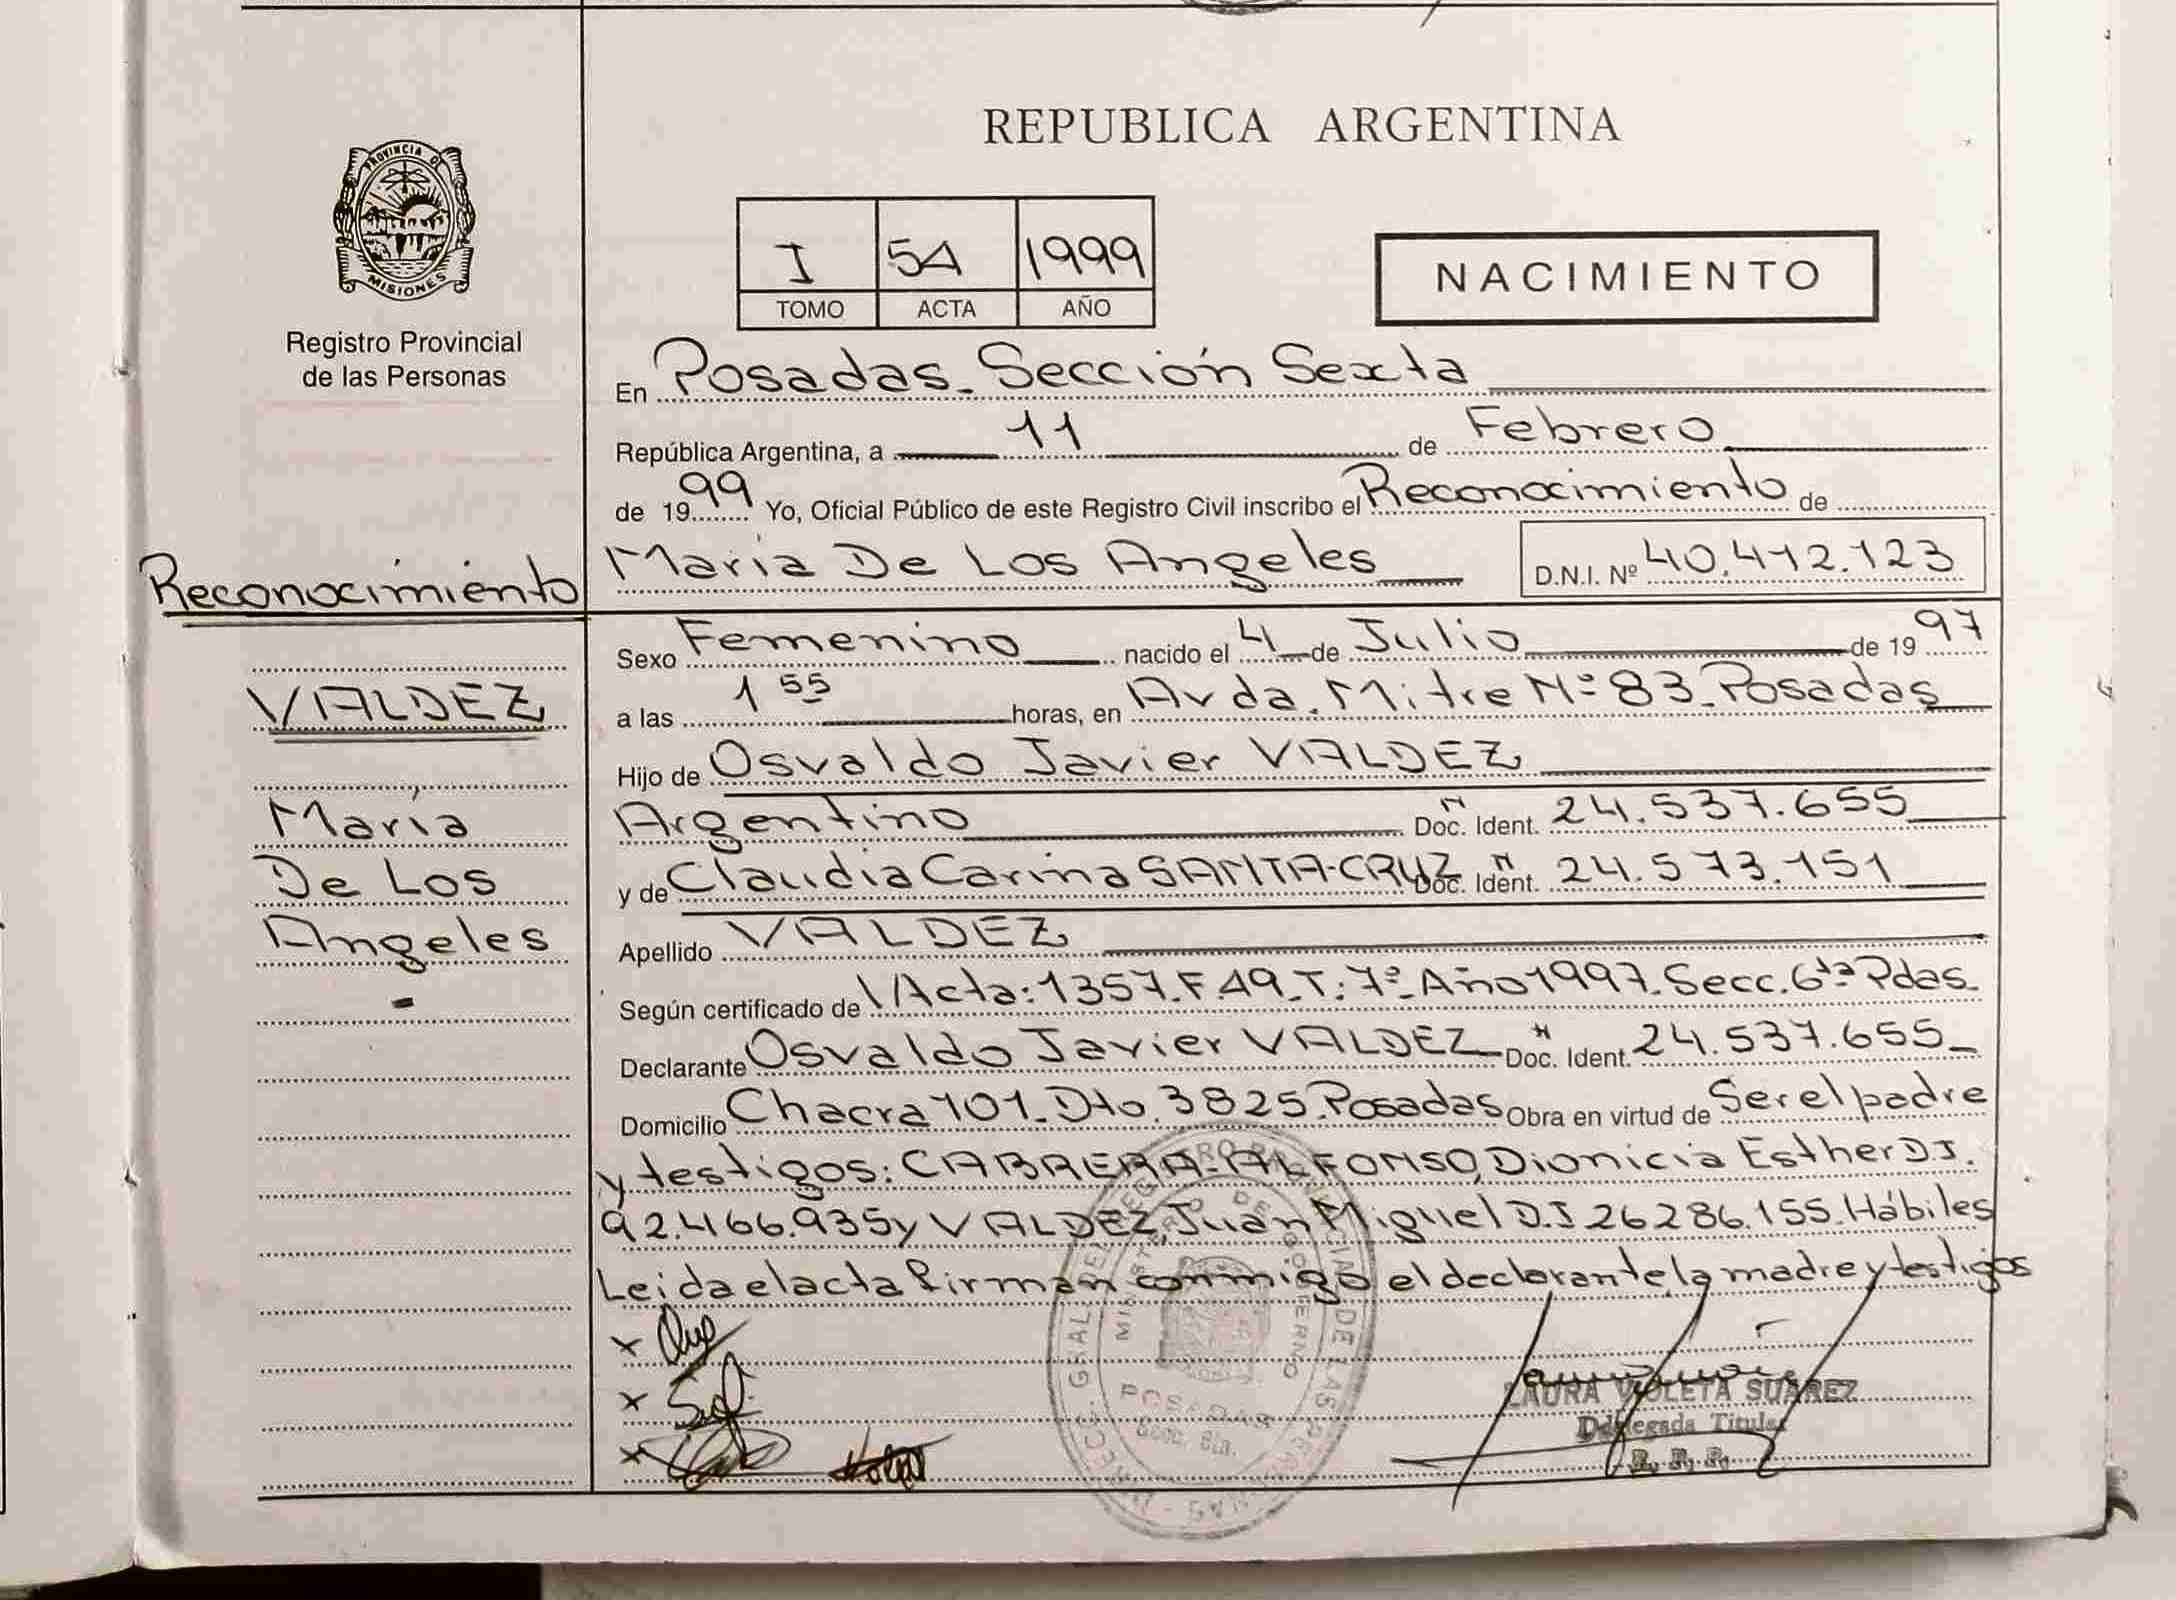 REPUBLICA ARGENTINA
PROVINCIA D
MISIONES
Registro Provincial
de las Personas
I 54 1999
TOMO ACTA AÑO
NACIMIENTO
En Posadas_Sección Sexta
República Argentina, a 11 de Febrero
de 1999 Yo, Oficial Público de este Registro Civil inscribo el Reconocimiento de
María De Los Angeles D.N.I. Nº 40.412.123
Reconocimiento
VALDEZ
María
De Los
Angeles
Sexo Femenino nacido el 4 de Julio de 1997
a las 1 55 horas, en Avda. Mitre Nº 83_Posadas
Hijo de Osvaldo Javier VALDEZ
Argentino N Doc. Ident. 24.537.655
y de Claudia Carina SANTA-CRUZ N Doc. Ident. 24.573.151
Apellido VALDEZ
Según certificado de \Acta:1357_F.49_T:7º_Año1997_Secc.6ta Pdas_
Declarante Osvaldo Javier VALDEZ N Doc. Ident. 24.537.655_
Domicilio Chacra 101_Dto.3825_Posadas Obra en virtud de Ser el padre
y testigos: CABRERA-ALFONSO, Dionicia Esther D.J.
92.466.935 y VALDEZ, Juan Miguel D.J 26286.155. Hábiles
Leida el acta firman conmigo el declarante la madre y testigos
DIRECC. GRAL DEL REGISTRO PROVINCIAL DE LAS PERSONAS
MINISTERIO DE GOBIERNO
POSADAS
Secc. 6ta.
LAURA VIOLETA SUAREZ
Delegada Titular
R. P. P.